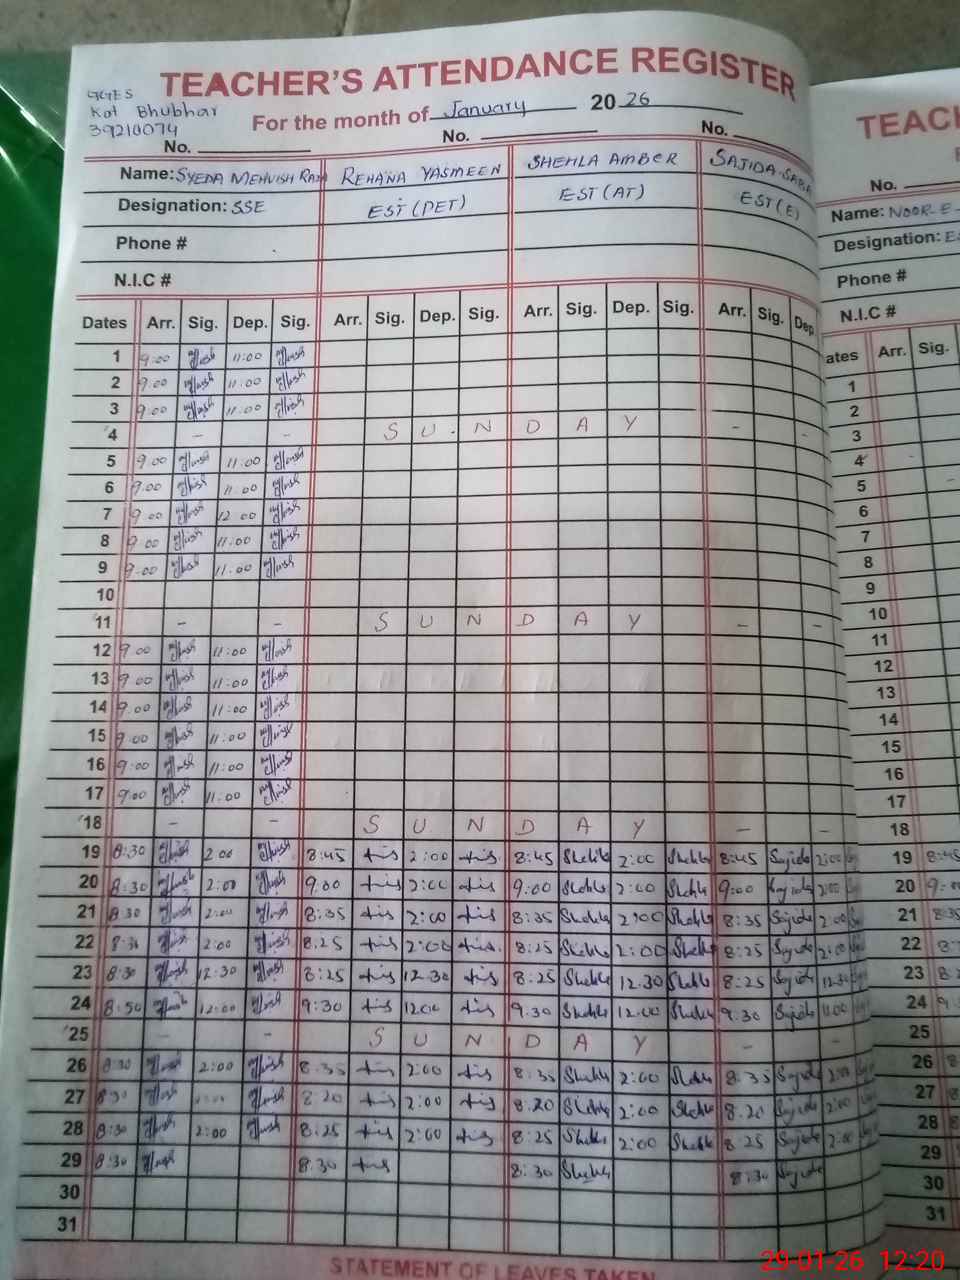 GGES
Kot Bhubhar
39210074
TEACHER'S ATTENDANCE REGISTER
For the month of January 2026
No. No. No.
Name: SYEDA MEHVISH RAZA REHANA YASMEEN SHEHLA AMBER SAJIDA SABA
Designation: SSE EST (PET) EST (AT) EST (E)
Phone #
N.I.C #
Dates Arr. Sig. Dep. Sig. Arr. Sig. Dep. Sig. Arr. Sig. Dep. Sig. Arr. Sig. Dep
1 9:00 11:00
2 9:00 11:00
3 9:00 11:00
4 - - S U N D A Y - -
5 9:00 11:00
6 9:00 11:00
7 9:00 12:00
8 9:00 11:00
9 9:00 11:00
10
11 - - S U N D A Y - -
12 9:00 11:00
13 9:00 11:00
14 9:00 11:00
15 9:00 11:00
16 9:00 11:00
17 9:00 11:00
18 - - S U N D A Y - -
19 8:30 2:00 8:45 2:00 8:45 Shehla 2:00 Shehla 8:45 Sajida 2:00
20 8:30 2:00 9:00 2:00 9:00 Shehla 2:00 Shehla 9:00 Sajida 2:00
21 8:30 2:00 8:35 2:00 8:35 Shehla 2:00 Shehla 8:35 Sajida 2:00
22 8:30 2:00 8:25 2:00 8:25 Shehla 2:00 Shehla 8:25 Sajida 2:00
23 8:30 12:30 8:25 12:30 8:25 Shehla 12:30 Shehla 8:25 Sajida 12:30
24 8:50 12:00 9:30 12:00 9:30 Shehla 12:00 Shehla 9:30 Sajida
25 - - S U N D A Y - -
26 8:30 2:00 8:35 2:00 8:35 Shehla 2:00 Shehla 8:35 Sajida 2:00
27 8:30 8:20 2:00 8:20 Shehla 2:00 Shehla 8:20 Sajida 2:00
28 8:30 2:00 8:25 2:00 8:25 Shehla 2:00 Shehla 8:25 Sajida 2:00
29 8:30 8:30 8:30 Shehla 8:30 Sajida
30
31
STATEMENT OF LEAVES TAKEN
TEACH
No.
Name: NOOR-E-
Designation: ES
Phone #
N.I.C #
ates Arr. Sig.
1
2
3
4
5
6
7
8
9
10
11
12
13
14
15
16
17
18
19 8:45
20 9:
21 8:35
22 8:
23 8:2
24 9
25
26 8
27 8
28 8
29
30
31
29-01-26 12:20